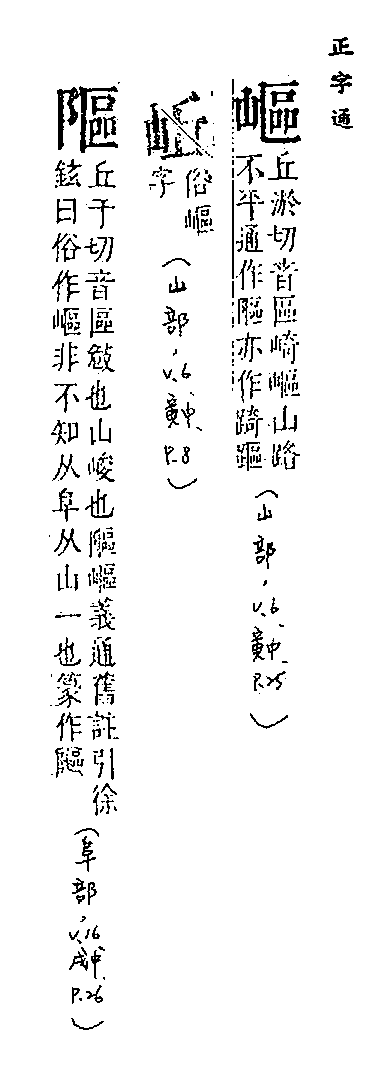 正字通
嶇
丘淤切音區崎嶇山路
不平通作䧢亦作踦䧢
俗嶇
字
(山部,v.6,寅中,P.25)
(山部,v.6,寅中,P.8)
䧢
丘于切音區㩻也山峻也䧢嶇義通舊註引徐
鉉曰俗作嶇非不知从阜从山一也篆作䧢
(阜部,v.16,戌中,P.26)